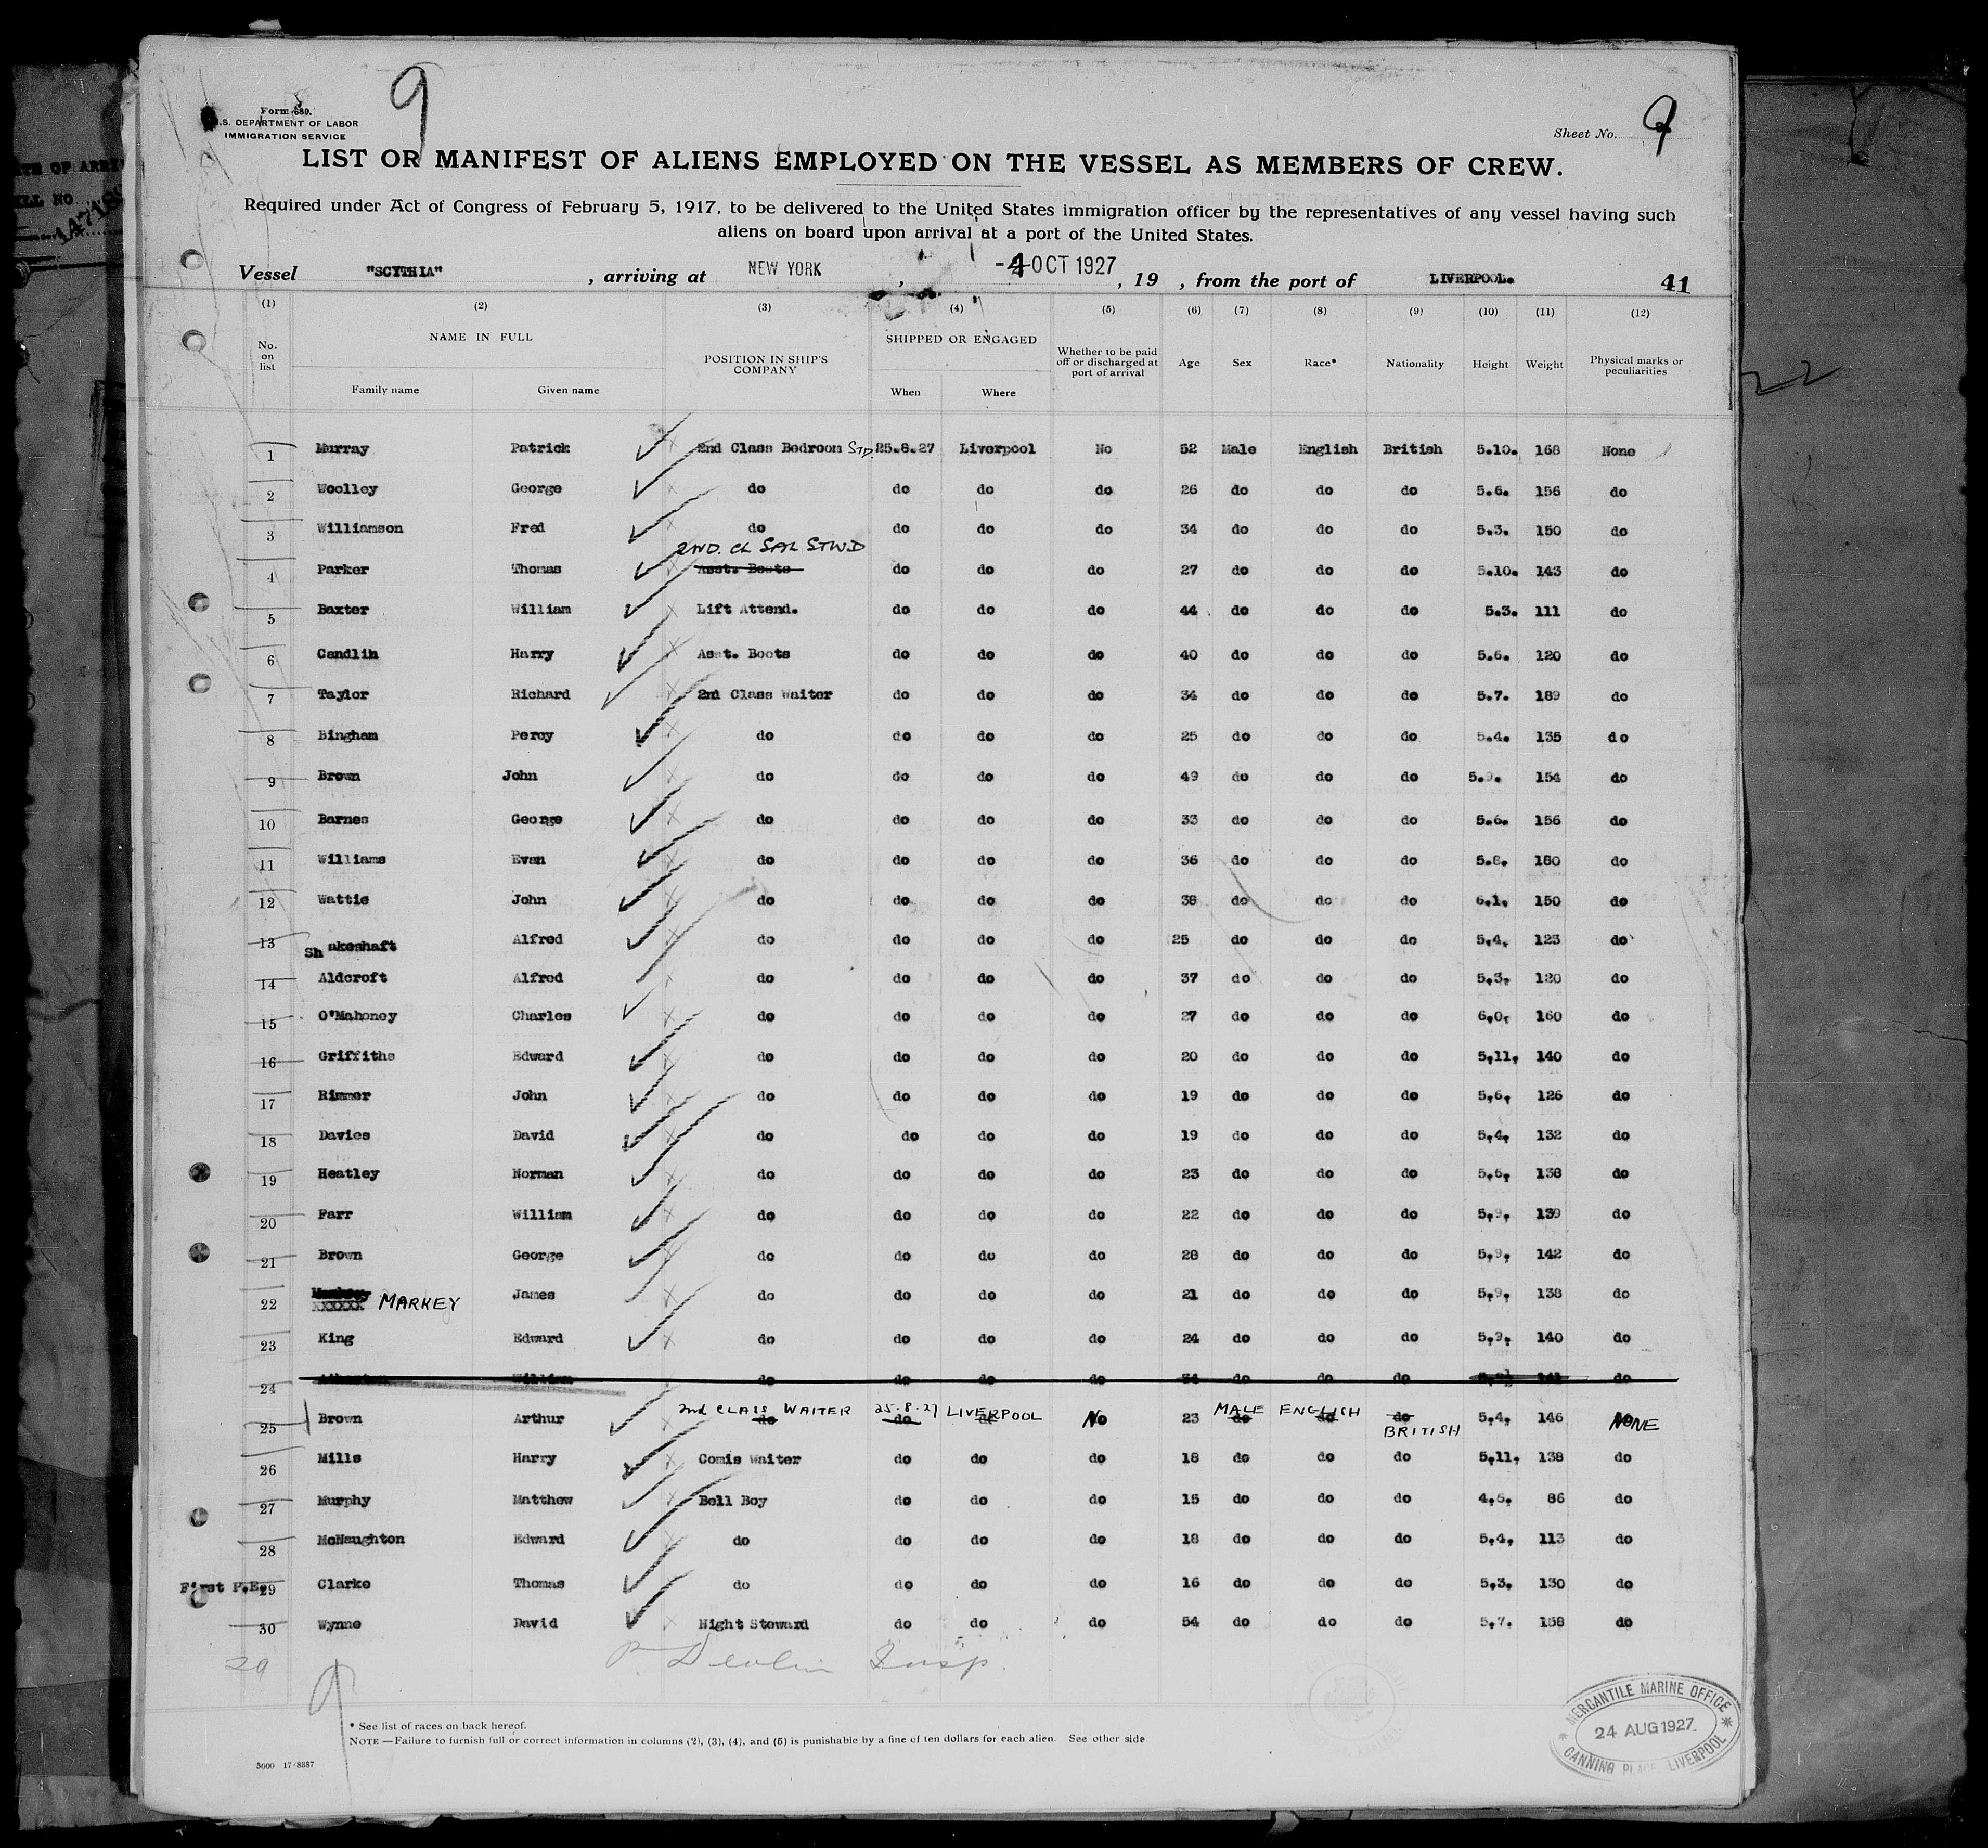 9
Form 680.
U.S. DEPARTMENT OF LABOR
IMMIGRATION SERVICE
Sheet No. 9
LIST OR MANIFEST OF ALIENS EMPLOYED ON THE VESSEL AS MEMBERS OF CREW.
Required under Act of Congress of February 5, 1917, to be delivered to the United States immigration officer by the representatives of any vessel having such
aliens on board upon arrival at a port of the United States.
Vessel "SCYTHIA", arriving at NEW YORK, -4 OCT 1927, 19 , from the port of LIVERPOOL. 41
(1) (2) (3) (4) (5) (6) (7) (8) (9) (10) (11) (12)
No. on list NAME IN FULL Family name Given name POSITION IN SHIP'S COMPANY SHIPPED OR ENGAGED When Where Whether to be paid off or discharged at port of arrival Age Sex Race* Nationality Height Weight Physical marks or peculiarities
1 Murray Patrick 2nd Class Bedroom STD. 25.8.27 Liverpool No 52 Male English British 5.10. 168 None
2 Woolley George do do do do 26 do do do 5.6. 156 do
3 Williamson Fred do do do do 34 do do do 5.3. 150 do
2ND. CL SAL STWD
4 Parker Thomas Asst. Boots do do do 27 do do do 5.10. 143 do
5 Baxter William Lift Attend. do do do 44 do do do 5.3. 111 do
6 Candlin Harry Asst. Boots do do do 40 do do do 5.6. 120 do
7 Taylor Richard 2nd Class Waiter do do do 34 do do do 5.7. 189 do
8 Bingham Percy do do do do 25 do do do 5.4. 135 do
9 Brown John do do do do 49 do do do 5.9. 154 do
10 Barnes George do do do do 33 do do do 5.6. 156 do
11 Williams Evan do do do do 36 do do do 5.8. 180 do
12 Wattie John do do do do 38 do do do 6.1. 150 do
13 Shakeshaft Alfred do do do do 25 do do do 5.4. 123 do
14 Aldcroft Alfred do do do do 37 do do do 5,3, 120 do
15 O'Mahoney Charles do do do do 27 do do do 6,0, 160 do
16 Griffiths Edward do do do do 20 do do do 5,11, 140 do
17 Rimmer John do do do do 19 do do do 5,6, 126 do
18 Davies David do do do do 19 do do do 5,4, 132 do
19 Heatley Norman do do do do 23 do do do 5,6, 138 do
20 Farr William do do do do 22 do do do 5,9, 139 do
21 Brown George do do do do 28 do do do 5,9, 142 do
22 XXXXXX MARKEY James do do do do 21 do do do 5,9, 138 do
23 King Edward do do do do 24 do do do 5,9, 140 do
24 William do do do do 34 do do do 141 do
25 Brown Arthur do 2nd CLASS WAITER do 25.8.27 do LIVERPOOL No 23 do MALE do ENGLISH do BRITISH 5,4, 146 NONE
26 Mills Harry Comis Waiter do do do 18 do do do 5,11, 138 do
27 Murphy Matthew Bell Boy do do do 15 do do do 4,6. 86 do
28 McNaughton Edward do do do do 18 do do do 5,4, 113 do
First P.E. 29 Clarke Thomas do do do do 16 do do do 5,3. 130 do
30 Wynne David Night Steward do do do 54 do do do 5,7. 158 do
29 9 P. Devlin Insp.
* See list of races on back hereof.
NOTE —Failure to furnish full or correct information in columns (2), (3), (4), and (5) is punishable by a fine of ten dollars for each alien. See other side
5000 17-8387
MERCANTILE MARINE OFFICE
24 AUG 1927
CANNING PLACE, LIVERPOOL